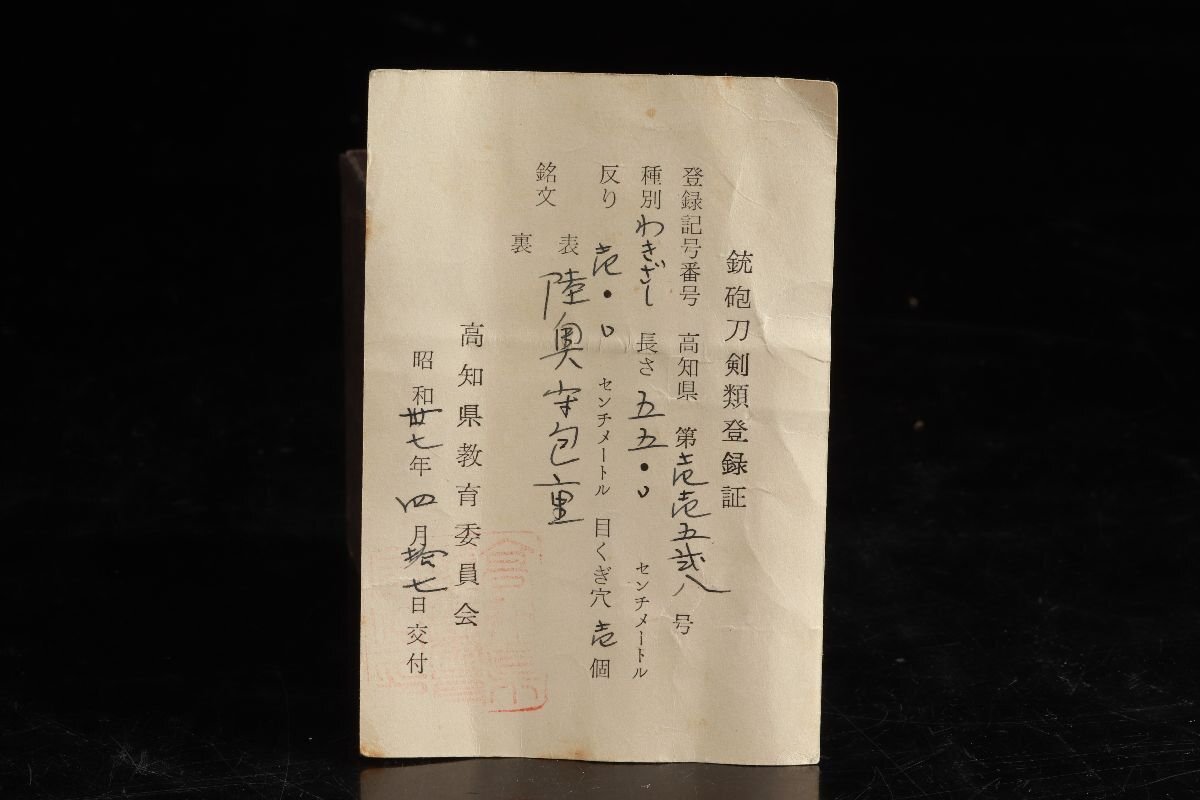 銃砲刀剣類登録証
登録記号番号 高知県 第壱壱五弐八号
種別 わきざし 長さ 五五・〇 センチメートル
反り 壱・〇 センチメートル 目くぎ穴 壱個
銘文 表 陸奥守包重
裏
高知県教育委員会
昭和卅七年四月拾七日交付